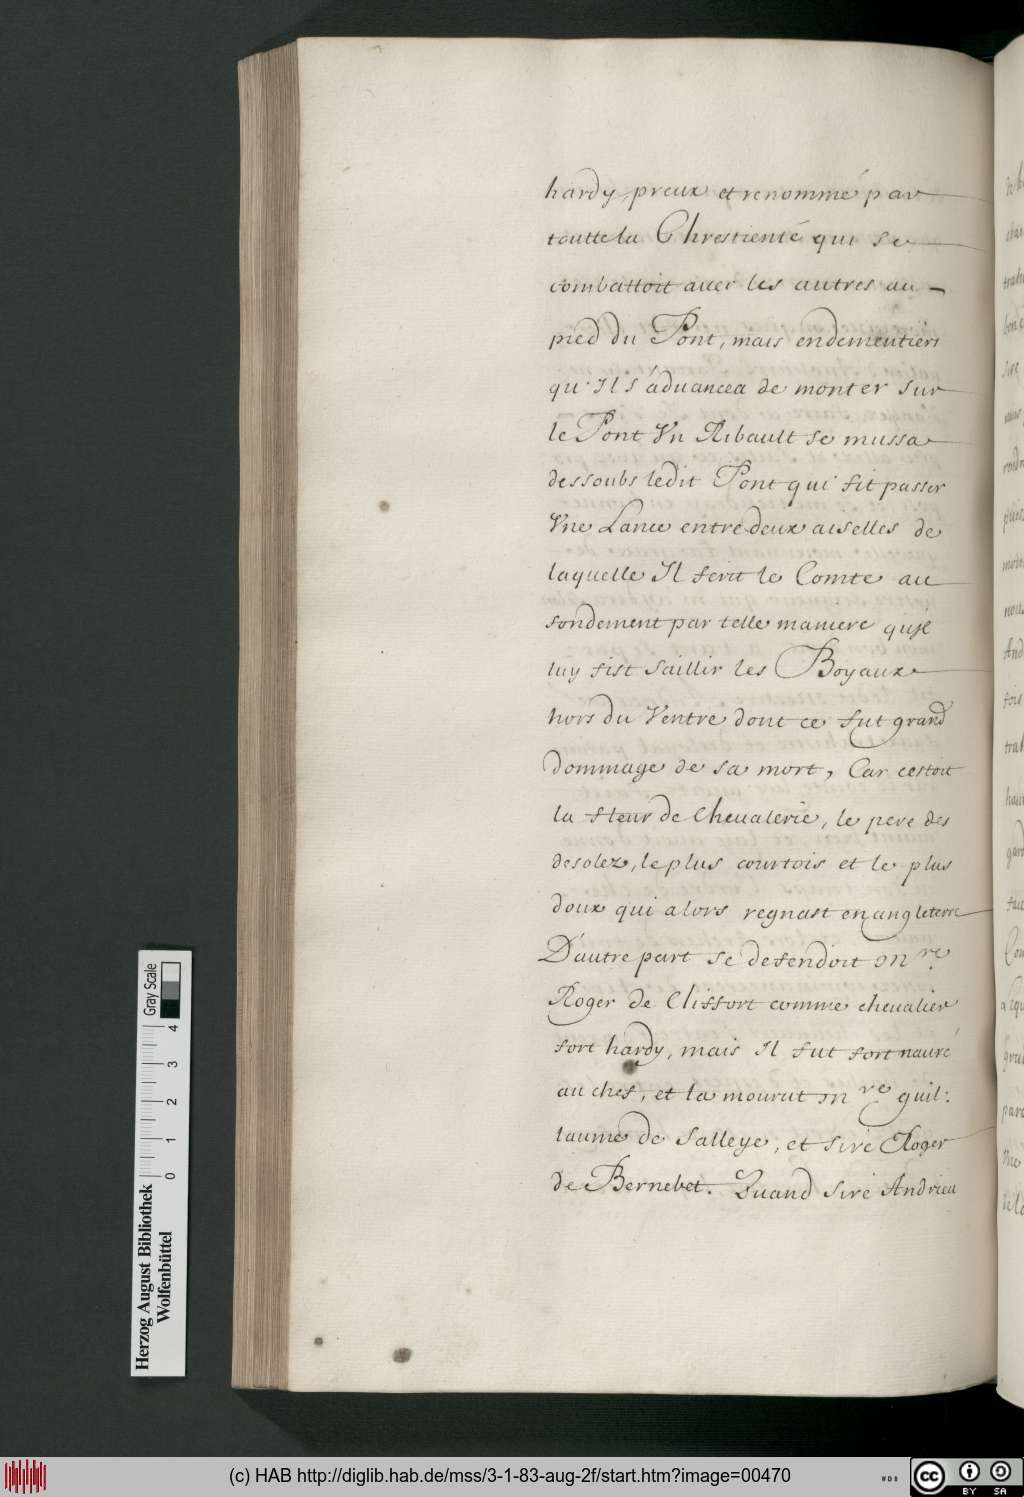 hardy, preux et renommé par
toutte la Chrestienté qui se
combattoit avec les autres au -
pied du Pont, mais endementiers
qu'Il s'aduancea de monter sur
le Pont Vn Ribault se mussa
dessoubs ledit Pont qui fit passer
Vne Lance entre deux aiselles de
laquelle Il ferit le Comte au
fondement par telle maniere qu'Il
luy fist saillir les Boyaux
hors du Ventre dont ce fut grand
dommage de sa mort, Car cestoit
la fleur de Cheualerie, le pere des
desolez, le plus courtois et le plus
doux qui alors regnast en angleterre
D'autre part se defendoit mre.
Roger de Cliffort comme cheualier
fort hardy, mais Il fut fort nauré
au chef, et la mourut mre. guil:
laume de Salleye, et sire Roger
de Bernebet. Quand Sire Andrieu
Herzog August Bibliothek
Wolfenbüttel
0 1 2 3 4
Gray Scale
(c) HAB http://diglib.hab.de/mss/3-1-83-aug-2f/start.htm?image=00470
WDB
cc
BY SA